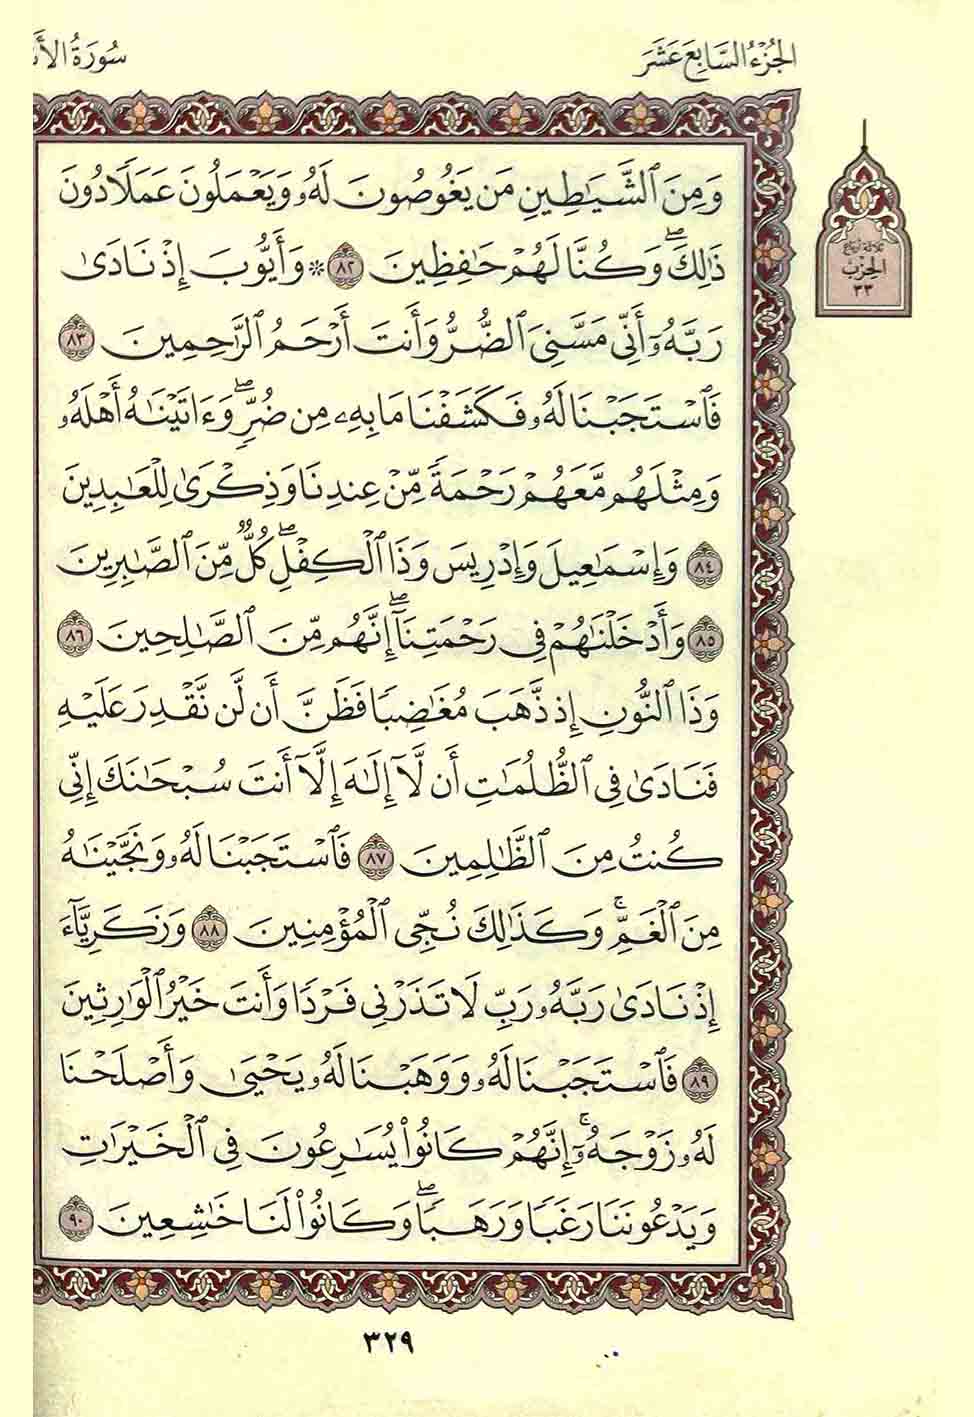 الجزء السابع عشر
سورة الأ
ثلاثة أرباع
الحزب
٣٣
وَمِنَ ٱلشَّيَٰطِينِ مَن يَغُوصُونَ لَهُۥ وَيَعْمَلُونَ عَمَلًا دُونَ
ذَٰلِكَۖ وَكُنَّا لَهُمْ حَٰفِظِينَ ٨٢ ۞ وَأَيُّوبَ إِذْ نَادَىٰ
رَبَّهُۥٓ أَنِّي مَسَّنِيَ ٱلضُّرُّ وَأَنتَ أَرْحَمُ ٱلرَّٰحِمِينَ ٨٣
فَٱسْتَجَبْنَا لَهُۥ فَكَشَفْنَا مَا بِهِۦ مِن ضُرٍّۖ وَءَاتَيْنَٰهُ أَهْلَهُۥ
وَمِثْلَهُم مَّعَهُمْ رَحْمَةً مِّنْ عِندِنَا وَذِكْرَىٰ لِلْعَٰبِدِينَ
٨٤ وَإِسْمَٰعِيلَ وَإِدْرِيسَ وَذَا ٱلْكِفْلِۖ كُلٌّ مِّنَ ٱلصَّٰبِرِينَ
٨٥ وَأَدْخَلْنَٰهُمْ فِي رَحْمَتِنَآۖ إِنَّهُم مِّنَ ٱلصَّٰلِحِينَ ٨٦
وَذَا ٱلنُّونِ إِذ ذَّهَبَ مُغَٰضِبًا فَظَنَّ أَن لَّن نَّقْدِرَ عَلَيْهِ
فَنَادَىٰ فِي ٱلظُّلُمَٰتِ أَن لَّآ إِلَٰهَ إِلَّآ أَنتَ سُبْحَٰنَكَ إِنِّي
كُنتُ مِنَ ٱلظَّٰلِمِينَ ٨٧ فَٱسْتَجَبْنَا لَهُۥ وَنَجَّيْنَٰهُ
مِنَ ٱلْغَمِّۚ وَكَذَٰلِكَ نُـۨجِي ٱلْمُؤْمِنِينَ ٨٨ وَزَكَرِيَّآءَ
إِذْ نَادَىٰ رَبَّهُۥ رَبِّ لَا تَذَرْنِي فَرْدًا وَأَنتَ خَيْرُ ٱلْوَٰرِثِينَ
٨٩ فَٱسْتَجَبْنَا لَهُۥ وَوَهَبْنَا لَهُۥ يَحْيَىٰ وَأَصْلَحْنَا
لَهُۥ زَوْجَهُۥٓۚ إِنَّهُمْ كَانُوا۟ يُسَٰرِعُونَ فِي ٱلْخَيْرَٰتِ
وَيَدْعُونَنَا رَغَبًا وَرَهَبًاۖ وَكَانُوا۟ لَنَا خَٰشِعِينَ ٩٠
٣٢٩